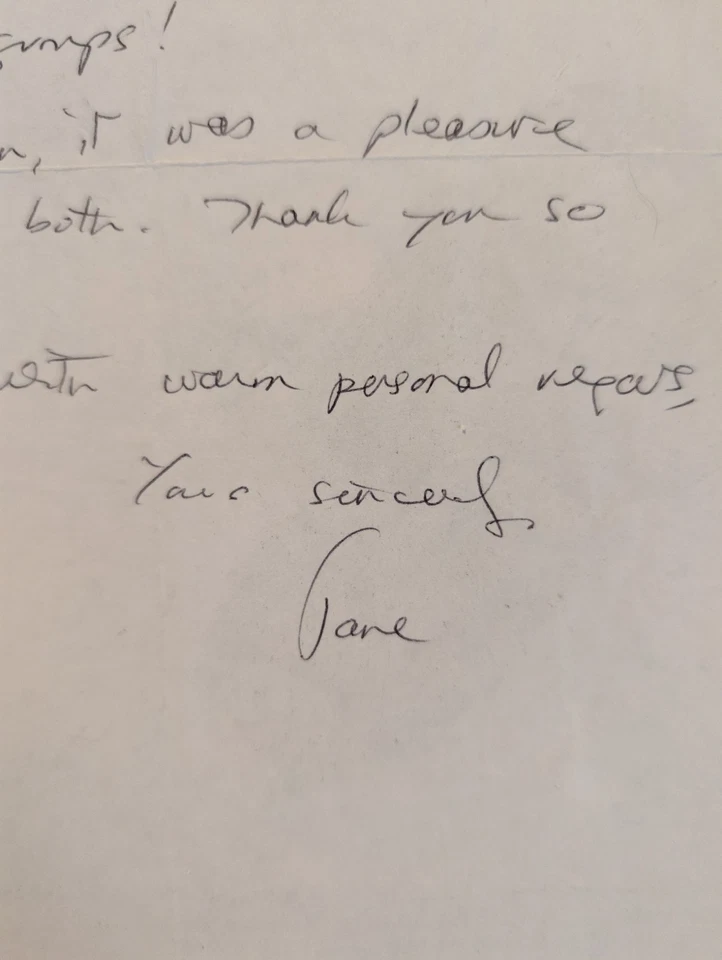 groups!
, it was a pleasure
both. Thank you so
with warm personal regards,
Yours sincerely
Jane